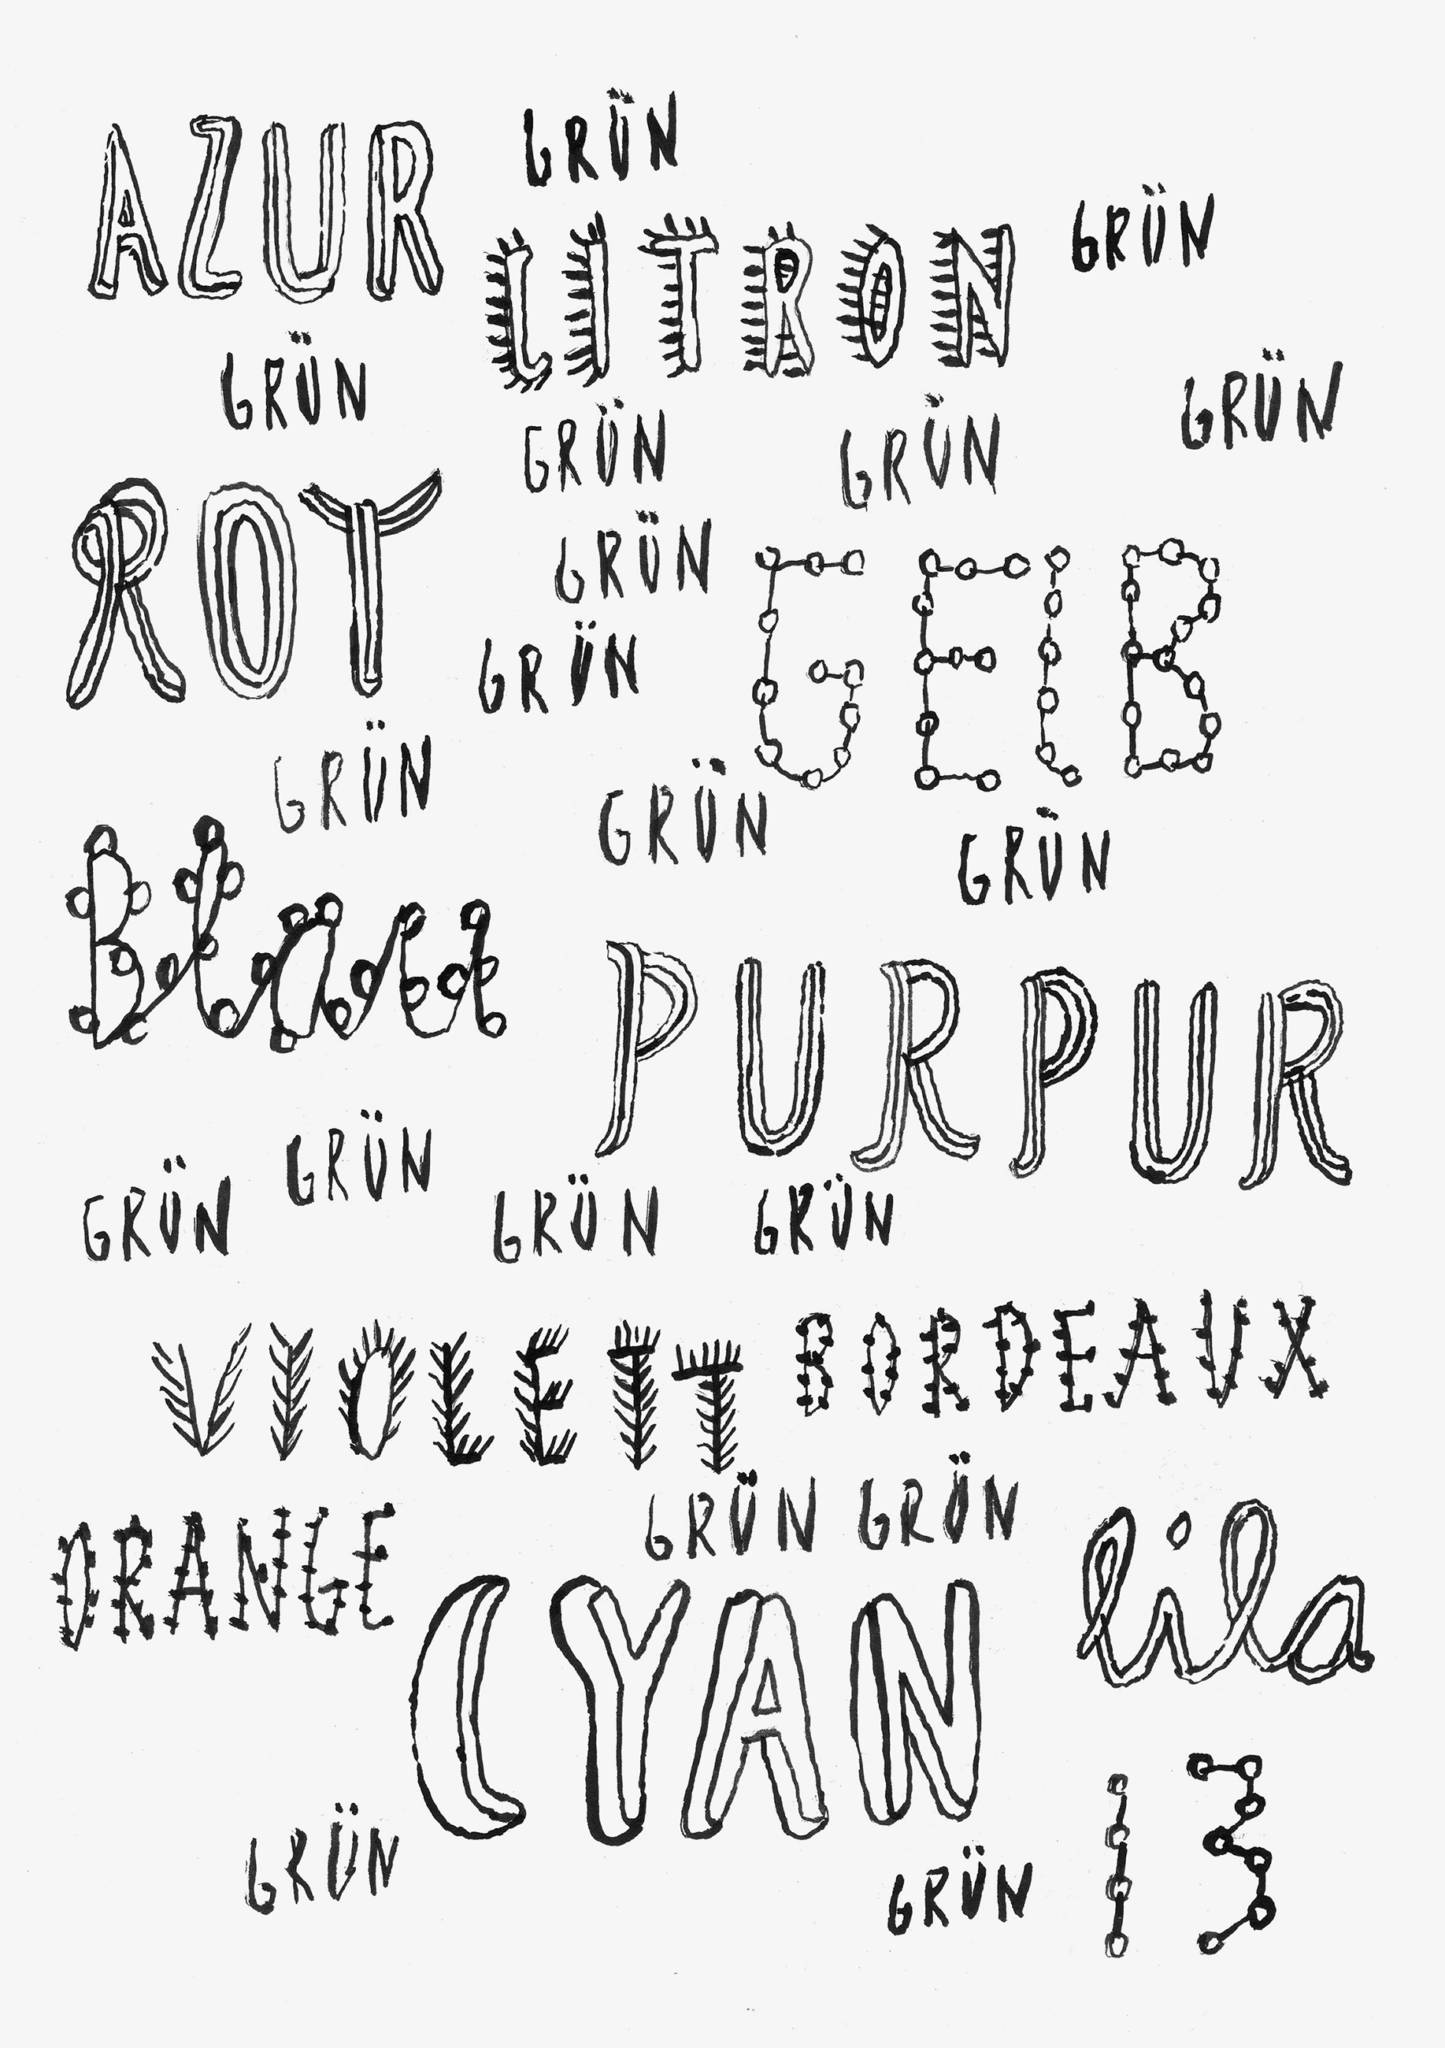 AZUR
GRÜN
GRÜN
LITRON
GRÜN
GRÜN
GRÜN
GRÜN
ROT
GRÜN
GELB
GRÜN
GRÜN
GRÜN
GRÜN
Blau
PURPUR
GRÜN
GRÜN
GRÜN
GRÜN
VIOLETT
BORDEAUX
GRÜN GRÜN
ORANGE
lila
CYAN
13
GRÜN
GRÜN